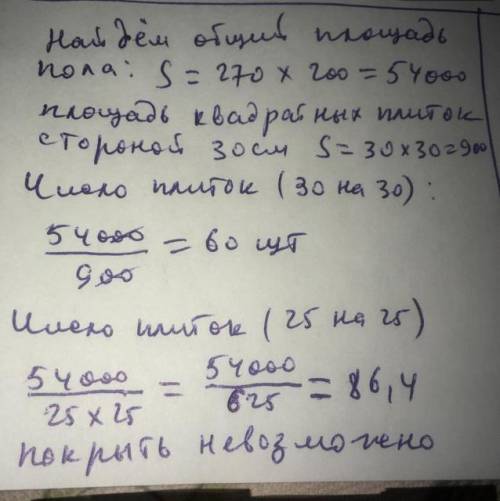 Найдём общий площадь
пола: S = 270 × 200 = 54000
площадь квадратных плиток
стороной 30см S = 30×30=900
Число плиток (30 на 30):
54000
/900 = 60 шт
Число плиток (25 на 25)
54000/25×25 = 54000/625 = 86,4
покрыть невозможено